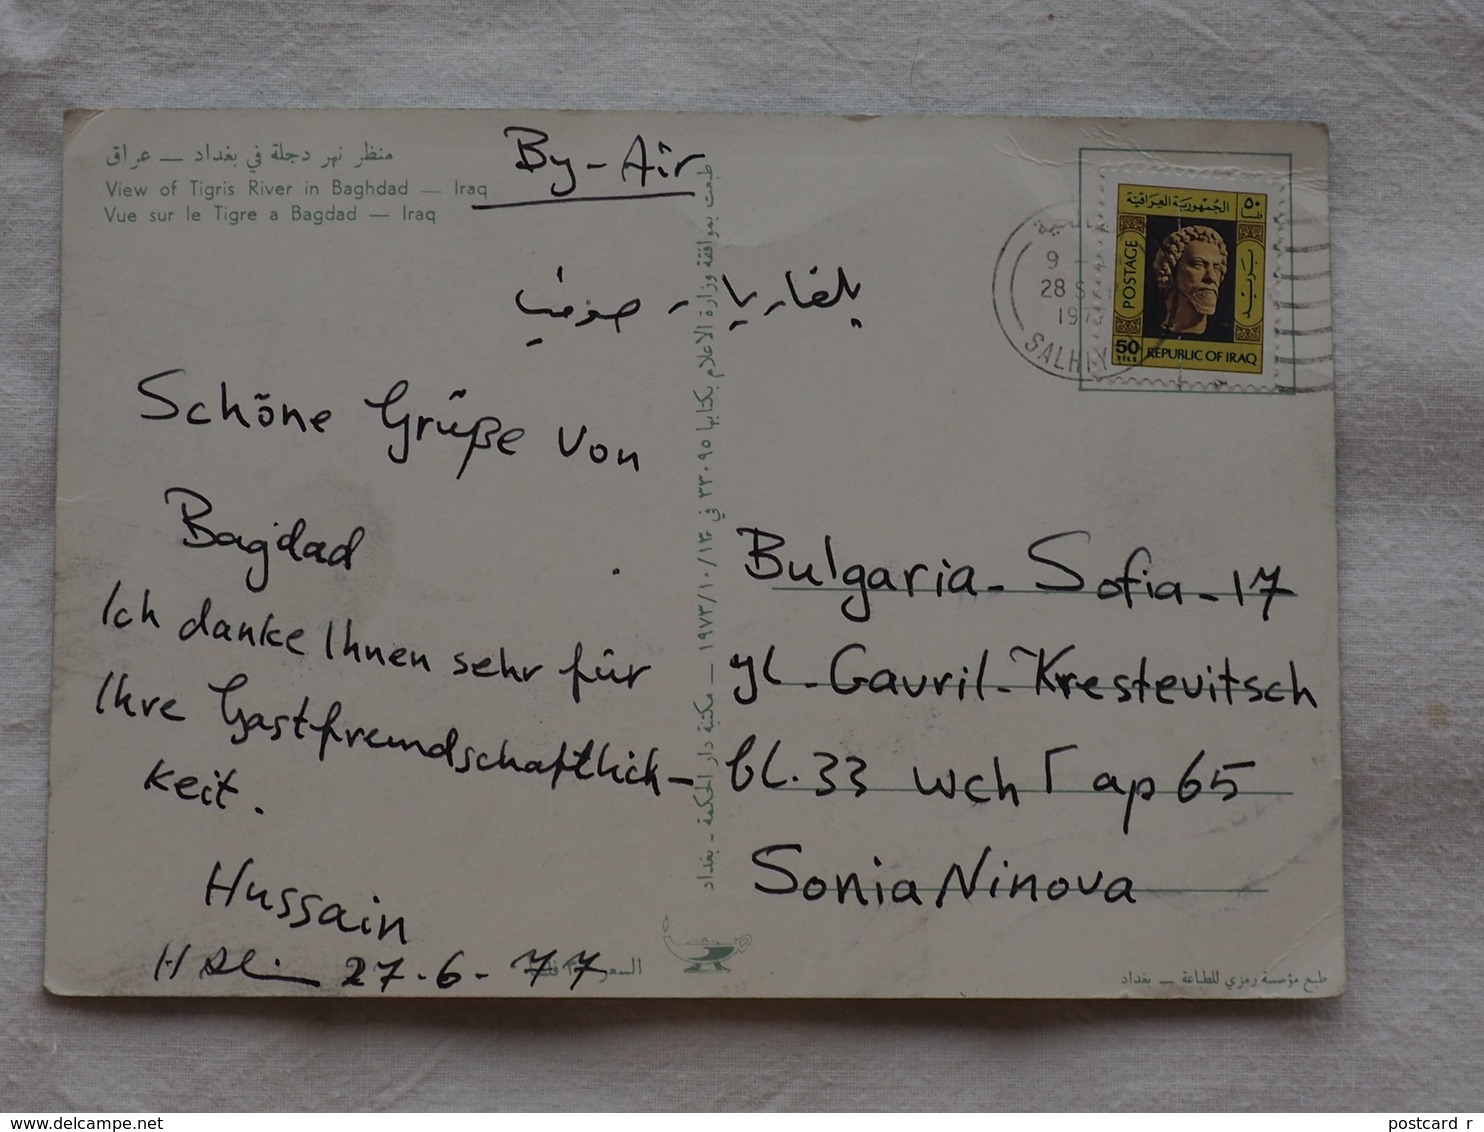 منظر نهر دجلة في بغداد — عراق
View of Tigris River in Baghdad — Iraq
Vue sur le Tigre a Bagdad — Iraq
By-Air
بلغاريا - صوفيا
Schöne Grüße von
Bagdad
Ich danke Ihnen sehr für
Ihre Gastfreundschaftlich-
keit.
Hussain
27-6-77
طبعت بموافقة وزارة الاعلام بكتابها ٣٣٠٩٥ في ١٩٧٣/١٠/١٣ — مكتبة دار الحكمة - بغداد
الجمهورية العراقية
٥٠
POSTAGE
بريد
50
FILS
REPUBLIC OF IRAQ
9
28 S
197
SALHIY
Bulgaria - Sofia - 17
gl - Gavril - Krestevitsch
bl. 33 wch Г ap 65
Sonia Ninova
طبع مؤسسة رمزي للطباعة — بغداد
postcard r